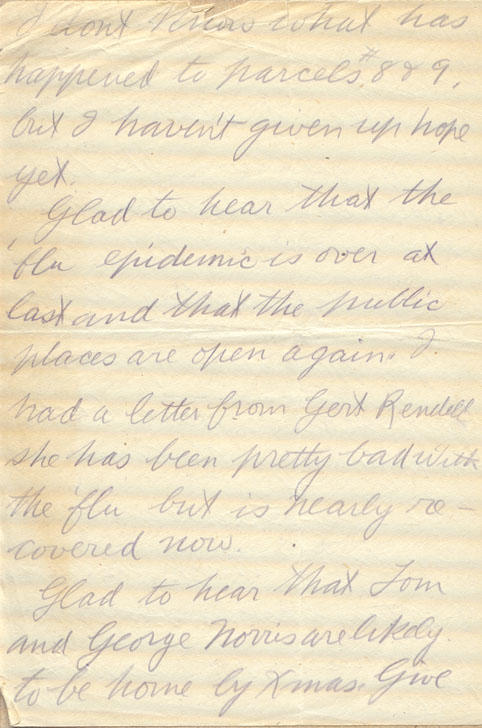 I don't know what has
happened to parcels, # 8 & 9,
but I haven't given up hope
yet.
Glad to hear that the
'flu epidemic is over at
last and that the public
places are open again. I
had a letter from Gert Rendell
she has been pretty bad with
the 'flu but is nearly re-
covered now.
Glad to hear that Tom
and George Norris are likely
to be home by Xmas. Give